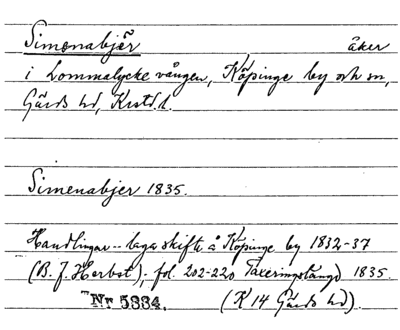 Simonabjer åker
i Lommalycke vången, Köpinge by och sn,
Gärds hd, Krstd. l.
Simenabjer 1835.
Handlingar -- laga skifte å Köpinge by 1832-37
(B. J. Herbst); fol. 202-220 Taxeringslängd 1835.
Nr 5334. (K 14 Gärds hd).